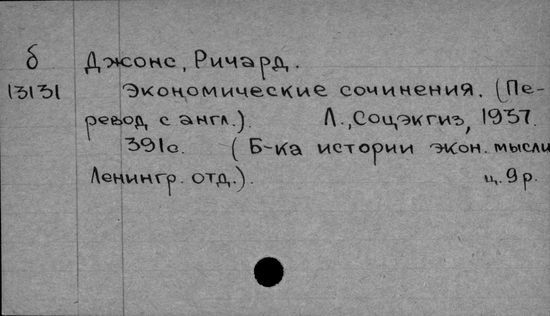 б Джонс, Ричард.
13131 Экономические сочинения. (Пе-
ревод с англ.). Л., Соцэкгиз, 1937.
391с. (Б-ка истории экон. мысли
Ленингр. отд.). ц. 9 р.